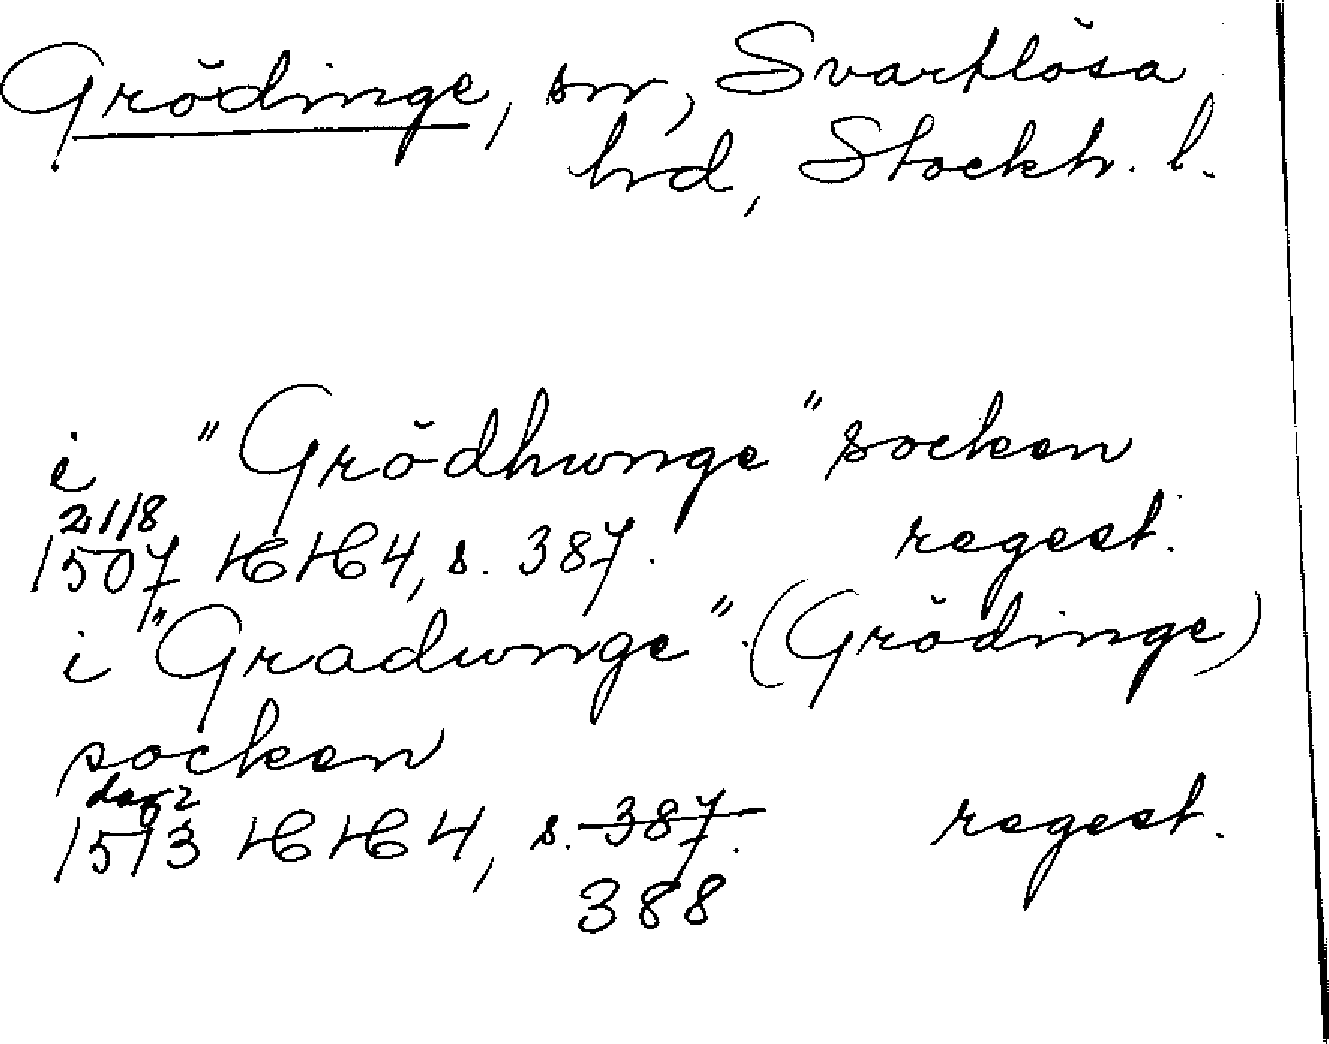 Grödinge, sn, Svartlösa
hd, Stockh. l.
i "Grödhunge" socken
21/8
1507 HH 4, s. 387. regest.
i "Gradunge". (Grödinge)
socken
1513 HH 4, s. 387. regest.
388